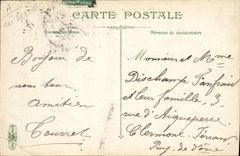 CARTE POSTALE
Correspondance
Adresse du destinataire
Bonjour de
nous tous
Amitier
Courret
Monsieur et Mme
Dischamp Fanfrais
et leur famille, 3
rue d'Aigueperse
Clermont-Ferrand
Puy-de-Dôme